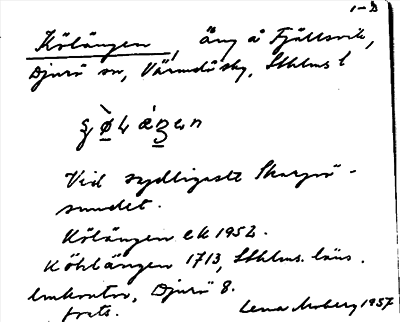 1-D
Kölängen, Äng å Fjällsvik,
Djurö sn, Värmdö skg, Sthlms l
Vid sydligaste Skarpö-
sundet.
Kölängen ek 1952.
Köhlängen 1713, Sthlms. läns.
lmkontor, Djurö 8.
forts. Lena Moberg 1957